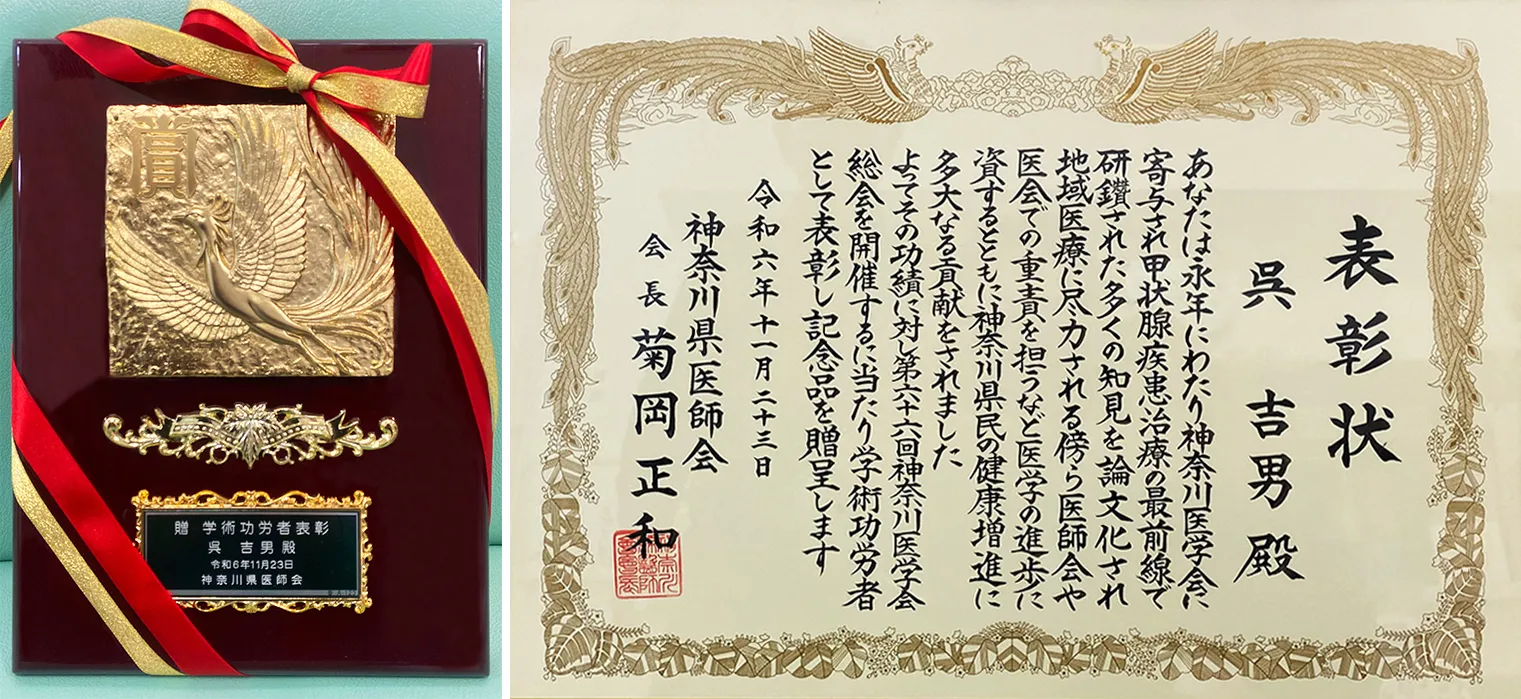 賞
贈 学術功労者表彰
呉 吉男 殿
令和6年11月23日
神奈川県医師会
表彰状
呉 吉男 殿
あなたは永年にわたり神奈川医学会に
寄与され甲状腺疾患治療の最前線で
研鑽された多くの知見を論文化され
地域医療に尽力される傍ら医師会や
医会での重責を担うなど医学の進歩に
資するとともに神奈川県民の健康増進に
多大なる貢献をされました
よってその功績に対し第六十六回神奈川医学会
総会を開催するに当たり学術功労者
として表彰し記念品を贈呈します
令和六年十一月二十三日
神奈川県医師会
会長 菊岡正和